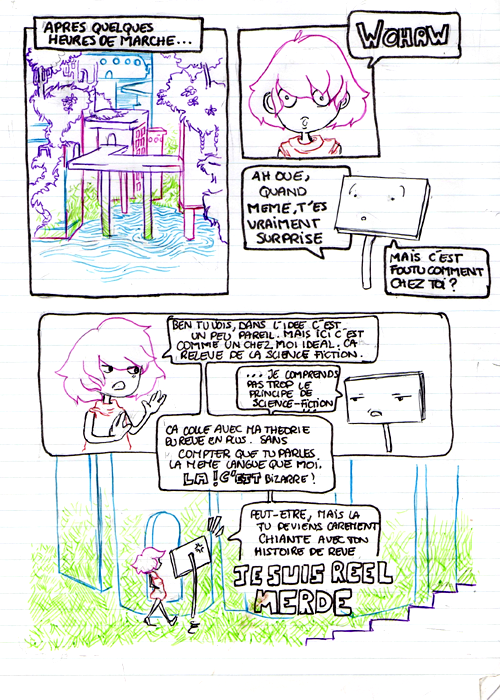 APRES QUELQUES
HEURES DE MARCHE...
WOHAW
AH OUE,
QUAND
MEME, T'ES
VRAIMENT
SURPRISE
MAIS C'EST
FOUTU COMMENT
CHEZ TOI ?
BEN TU VOIS, DANS L'IDEE C'EST
UN PEU PAREIL. MAIS ICI C'EST
COMME UN CHEZ MOI IDEAL. CA
RELEVE DE LA SCIENCE FICTION.
... JE COMPRENDS
PAS TROP LE
PRINCIPE DE
SCIENCE-FICTION
...
CA COLLE AVEC MA THEORIE
DU REVE EN PLUS. SANS
COMPTER QUE TU PARLES
LA MEME LANGUE QUE MOI.
LA ! C'EST BIZARRE !
PEUT-ETRE, MAIS LA
TU DEVIENS CAREMENT
CHIANTE AVEC TON
HISTOIRE DE REVE
JE SUIS REEL
MERDE